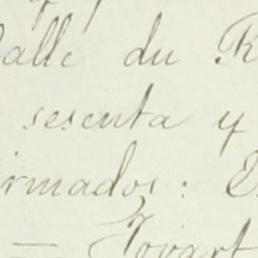 alle du R
sesenta y
irmados: E
Tovart